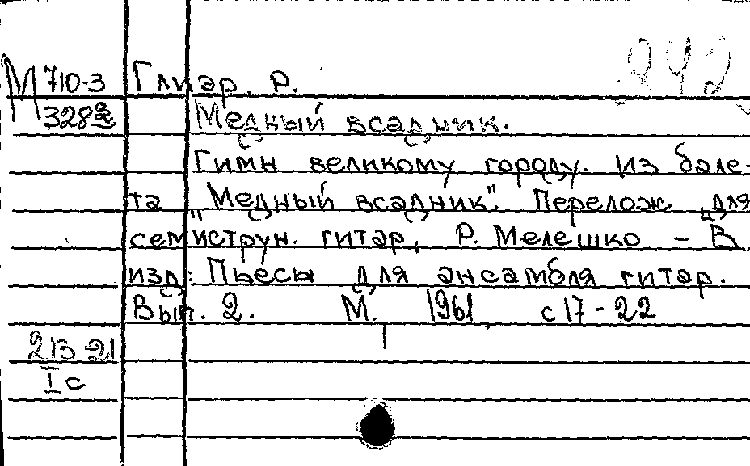 М 710-3 Глиэр, Р.
328
Медный всадник.
Гимн великому городу. Из бале-
та „Медный всадник". Перелож. для
семиструн. гитар, Р. Мелешко – В
изд: Пьесы для ансамбля гитар.
Вып. 2. М. 1961 с 17-22
213-21
I c